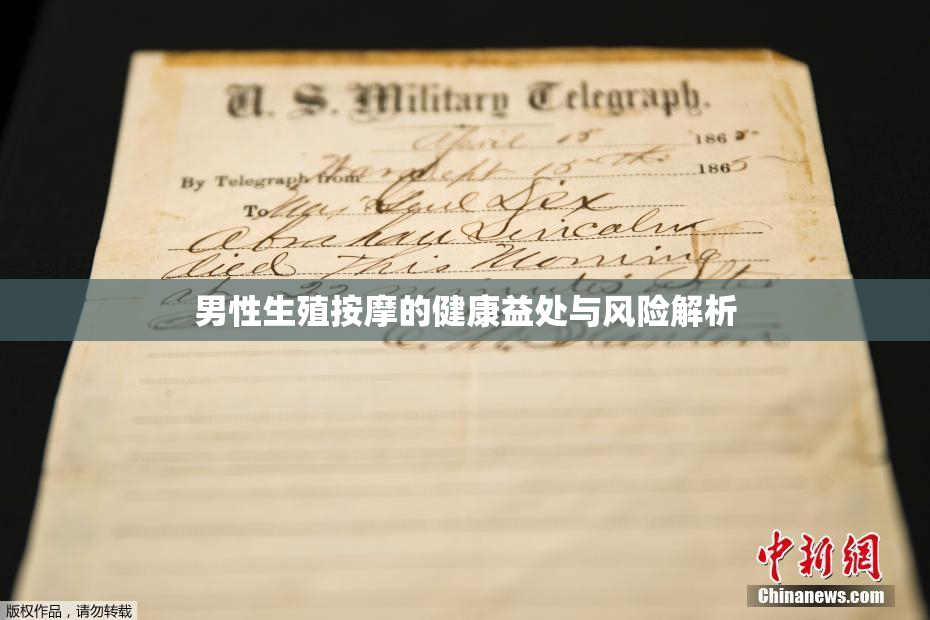 U. S. Military Telegraph.
April 15 1865
By Telegraph from War Dept 15th 1865
To Maj Genl Dix
Abraham Lincoln
died This Morning
at 22 minutes after
男性生殖按摩的健康益处与风险解析
中新网
Chinanews.com
版权作品，请勿转载